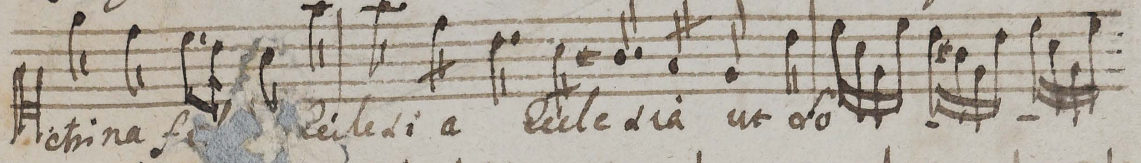 china fi Ecclesia Ecclesia ut do